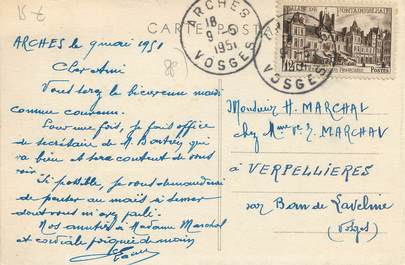 15 €
CARTE POSTALE
ARCHES
18
9-5
1951
VOSGES
PALAIS DE FONTAINEBLEAU
POSTES
ARCHES le 9 mai 1951
Cher Ami
Vous serez le bienvenu mardi
comme convenu.
Pour une fois, je fais office
de secrétaire de M. qui
va bien et sera content de vous
voir.
Si possible, je vous demanderai
de porter au maïs à semer
dont vous m'avez parlé.
Nos amitiés à Madame Marchal
et cordiale poignée de main
Monsieur H. MARCHAL
chez Mme Vve J. MARCHAL
à VERPELLIERES
sur Ban de Laveline
(Vosges)